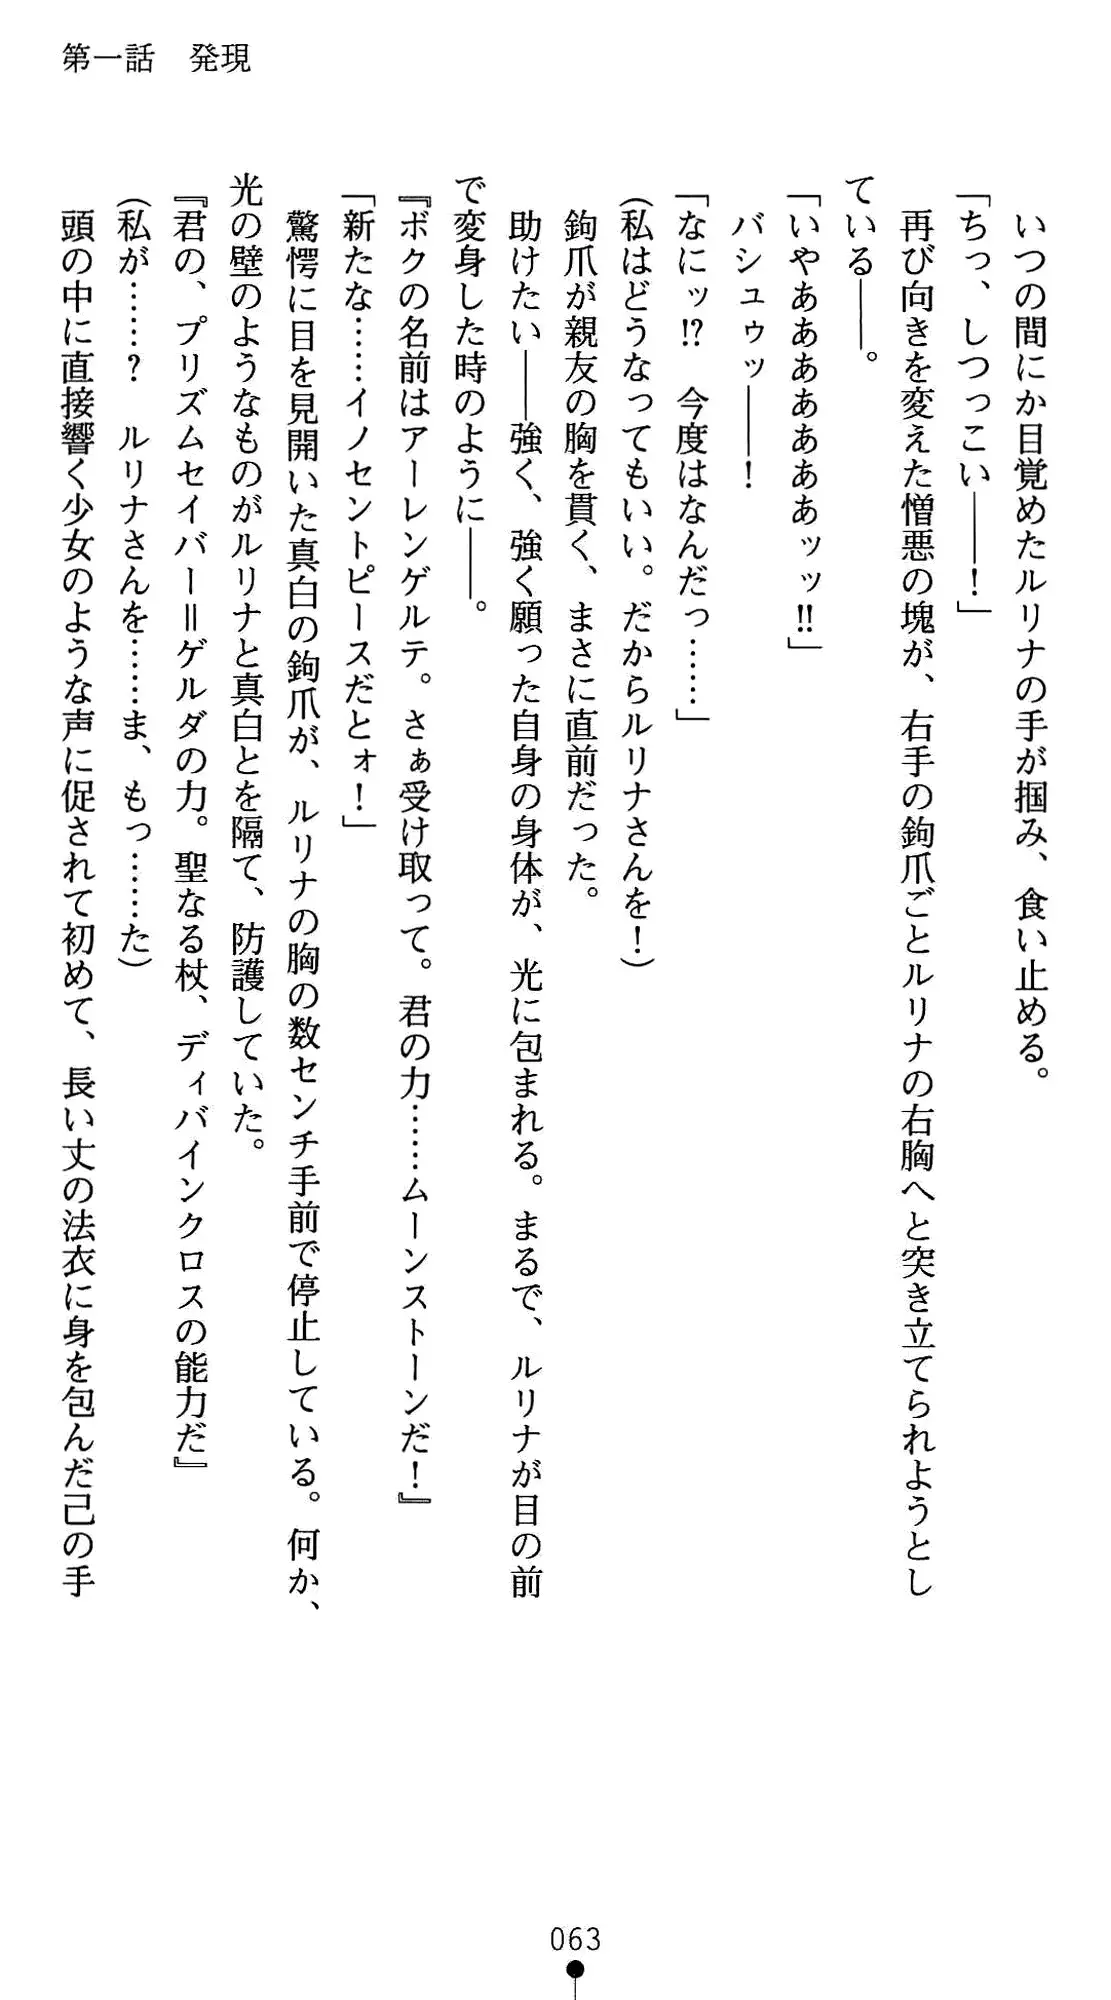 第一話　発現
いつの間にか目覚めたルリナの手が掴み、食い止める。
「ちっ、しつっこい――！」
再び向きを変えた憎悪の塊が、右手の鉤爪ごとルリナの右胸へと突き立てられようとし
ている――。
「いやああああああぁッッ!!」
バシュゥッ――！
「なにッ!?　今度はなんだっ……」
(私はどうなってもいい。だからルリナさんを！)
鉤爪が親友の胸を貫く、まさに直前だった。
助けたい――強く、強く願った自身の身体が、光に包まれる。まるで、ルリナが目の前
で変身した時のように――。
『ボクの名前はアーレンゲルテ。さぁ受け取って。君の力……ムーンストーンだ！』
「新たな……イノセントピースだとォ！」
驚愕に目を見開いた真白の鉤爪が、ルリナの胸の数センチ手前で停止している。何か、
光の壁のようなものがルリナと真白とを隔て、防護していた。
『君の、プリズムセイバー＝ゲルダの力。聖なる杖、ディバインクロスの能力だ』
(私が……？　ルリナさんを……ま、もっ……た)
頭の中に直接響く少女のような声に促されて初めて、長い丈の法衣に身を包んだ己の手
063